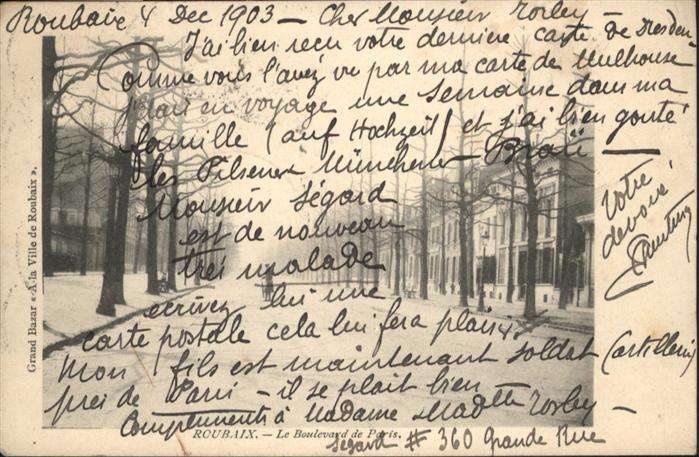 Roubaix 4 Dec 1903 — Cher Monsieur Torley —
J'ai bien reçu votre dernière carte de Dresden
Comme vous l'avez vu par ma carte de Mulhouse
j'étais en voyage une semaine dans ma
famille (auf Hochzeit) et j'ai bien gouté
les Pilsener Münchener — Braü —
Monsieur Ségard
est de nouveau
très malade
écrivez lui une
carte postale cela lui fera plaisir
Mon fils est maintenant soldat (artillerie)
près de Paris — il se plait bien
Compliments à Madame Torley —
Votre
dévoué
ROUBAIX. — Le Boulevard de Paris.
Segard # 360 Grande Rue
Grand Bazar « A la Ville de Roubaix ».